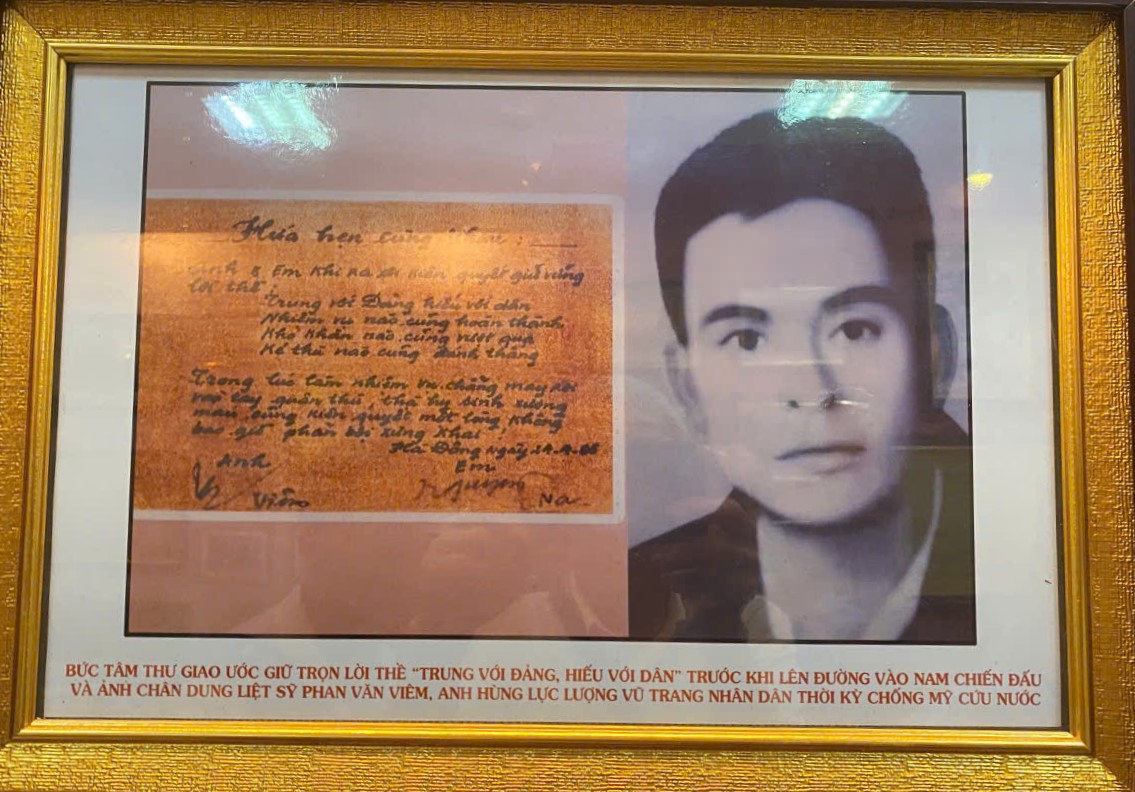 Hứa hẹn cùng nhau:
Anh & Em khi ra đi kiên quyết giữ vững
lời thề:
Trung với Đảng hiếu với dân
Nhiệm vụ nào cũng hoàn thành,
Khó khăn nào cũng vượt qua
Kẻ thù nào cũng đánh thắng
Trong lúc làm nhiệm vụ chẳng may rơi
vào tay quân thù, thà hy sinh xương
máu cũng kiên quyết một lòng không
bao giờ phản bội xưng khai
Hà Đông ngày
Anh Em
Viêm Na
BỨC TÂM THƯ GIAO ƯỚC GIỮ TRỌN LỜI THỀ “TRUNG VỚI ĐẢNG, HIẾU VỚI DÂN” TRƯỚC KHI LÊN ĐƯỜNG VÀO NAM CHIẾN ĐẤU
VÀ ẢNH CHÂN DUNG LIỆT SỸ PHAN VĂN VIÊM, ANH HÙNG LỰC LƯỢNG VŨ TRANG NHÂN DÂN THỜI KỲ CHỐNG MỸ CỨU NƯỚC